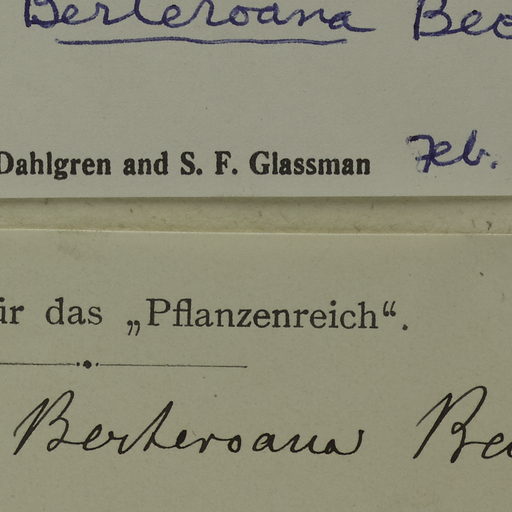 Berteroana Bec
Dahlgren and S. F. Glassman Feb.
ür das „Pflanzenreich“.
Berteroana Bec